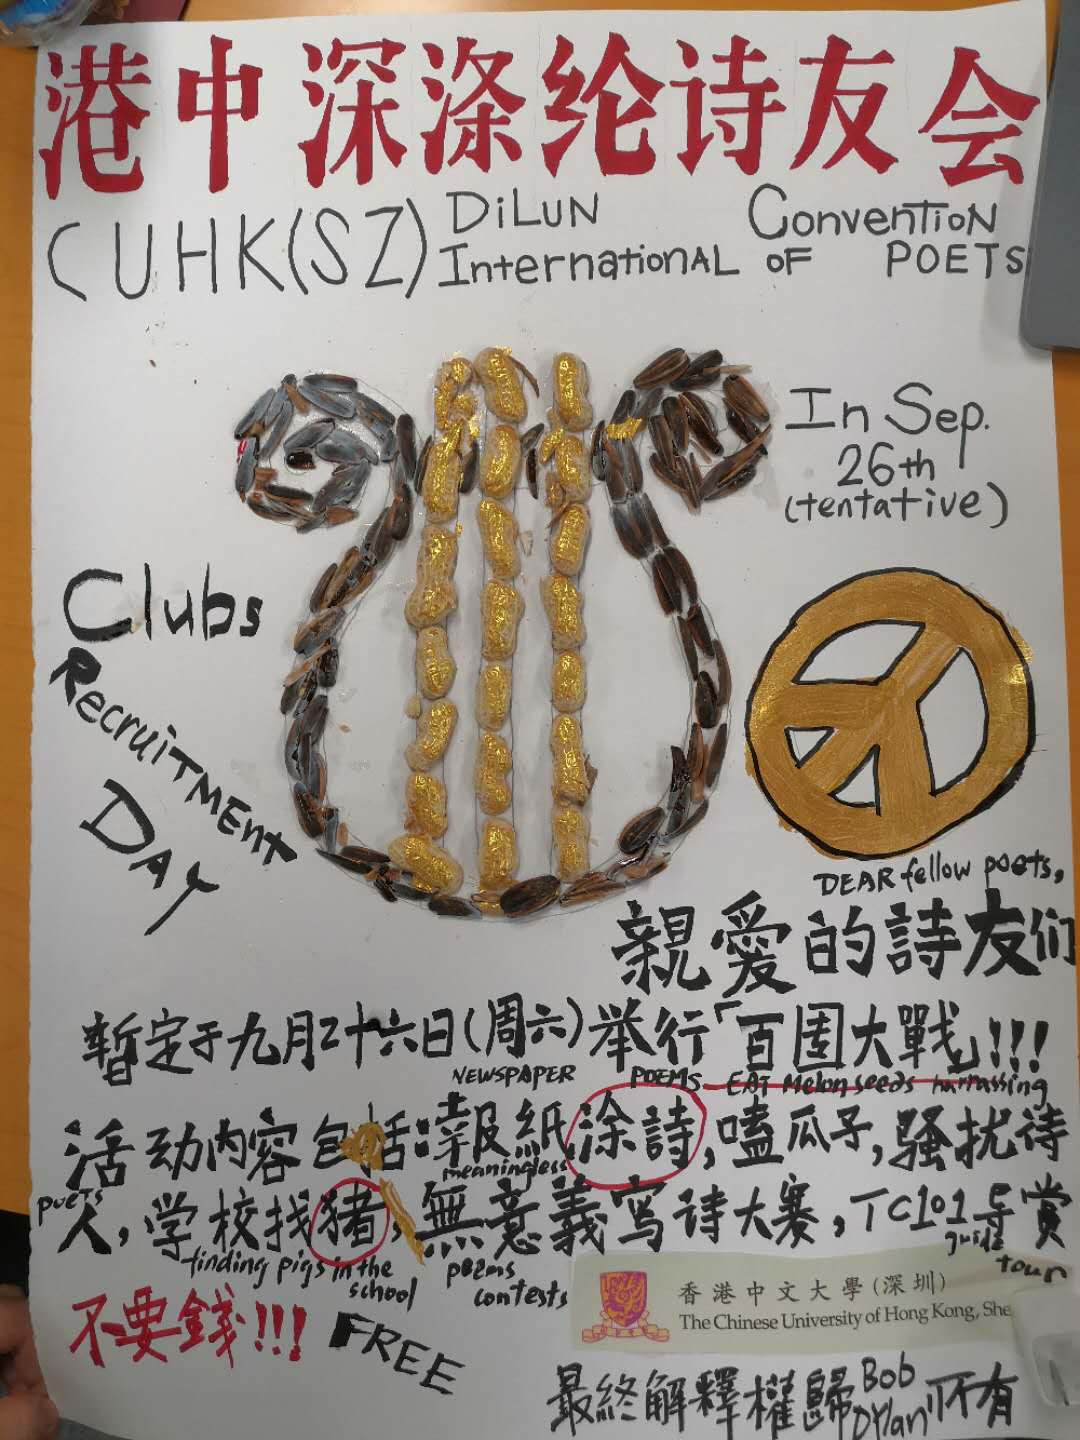 港中深涤纶诗友会
CUHK(SZ) DiLUN Convention
International OF POETS
In Sep.
26th
(tentative)
Clubs
Recruitment
DAY
DEAR fellow poets,
親愛的詩友们
暂定于九月二十六日(周六)举行「百団大戰」!!!
NEWSPAPER POEMS EAT Melon seeds harrassing
活动内容包括:報紙涂詩,嗑瓜子,骚扰待
poets meaningless
人,学校找猪,無意義写诗大赛,TC101导赏
finding pigs in the school poems contests guide tour
不要錢!!! FREE
香港中文大學(深圳)
The Chinese University of Hong Kong, She
最終解釋權歸Bob Dylan所有